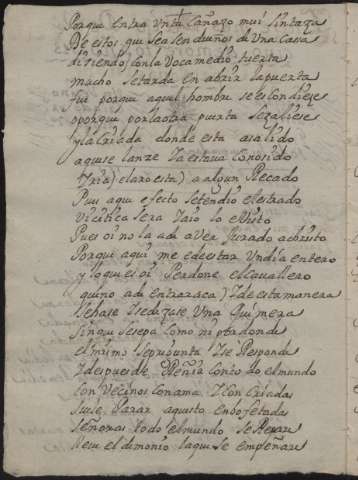 Porque entra un tal Cañazo mui sin taza
De estos que sea sen dueños de una Cassa
diziendo con la Voca medio tuerta
mucho se tarda en abrir la puerta
fue porque aquel hombre se escondiese
o porque por la otra puerta se saliese
y la Criada donde esta a salido
aqui se lanze ia estava Conosido
Iria (claro esta) a algun Recado
Pues aqui efecto
Visitica sera Iaio lo e Visto
Pues oi no la ad a Ver Jurado a christo
Porque aqui me e de estar Un dia entero
y lo que es oi Perdone el Cavallero
que no ad Entrar aca y de esta manera
Una quimera
sin que se sepa Como ni por donde
el mismo se pregunta y se Responde
y despues de Reñir Con todo el mundo
Con Vezinos Con ama y Con Criadas
Suele Parar aquesto en bofetadas
señoras todo el mundo se
lleve el dimonio la que se empeñare